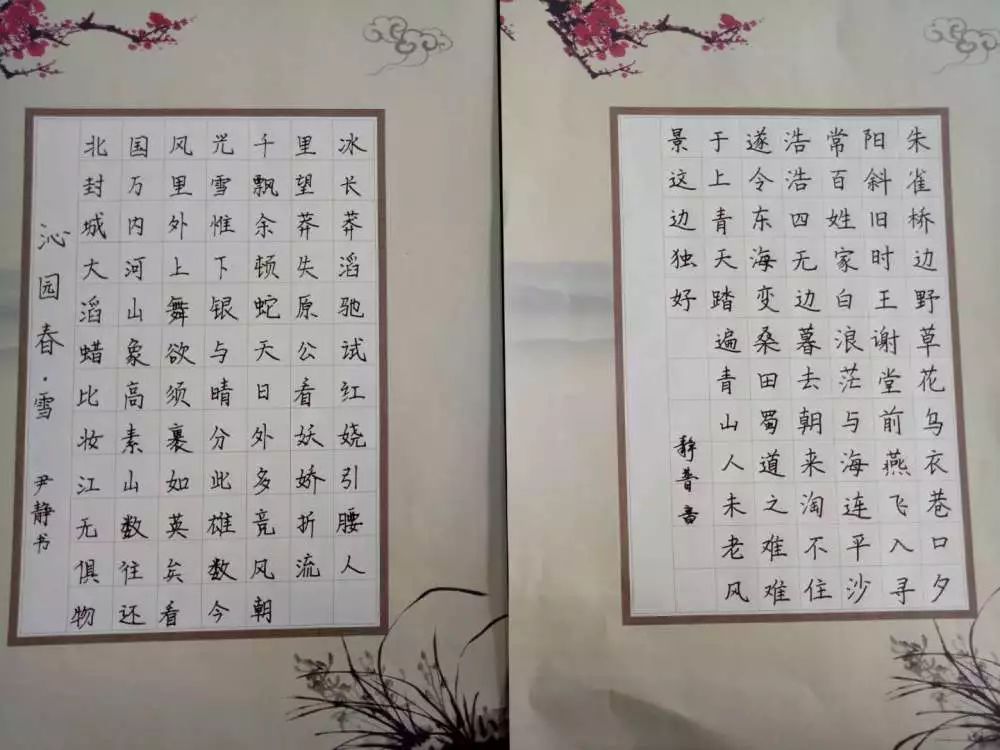 沁园春·雪
尹静书
北国风光千里冰
封万里雪飘望长
城内外惟余莽莽
大河上下顿失滔
滔山舞银蛇原驰
蜡象欲与天公试
比高须晴日看红
妆素裹分外妖娆
江山如此多娇引
无数英雄竞折腰
俱往矣数风流人
物还看今朝
朱雀桥边野草花乌衣巷口夕
阳斜旧时王谢堂前燕飞入寻
常百姓家白浪茫与海连平沙
浩浩四无边暮去朝来淘不住
遂令东海变桑田蜀道之难难
于上青天踏遍青山人未老风
景这边独好
静